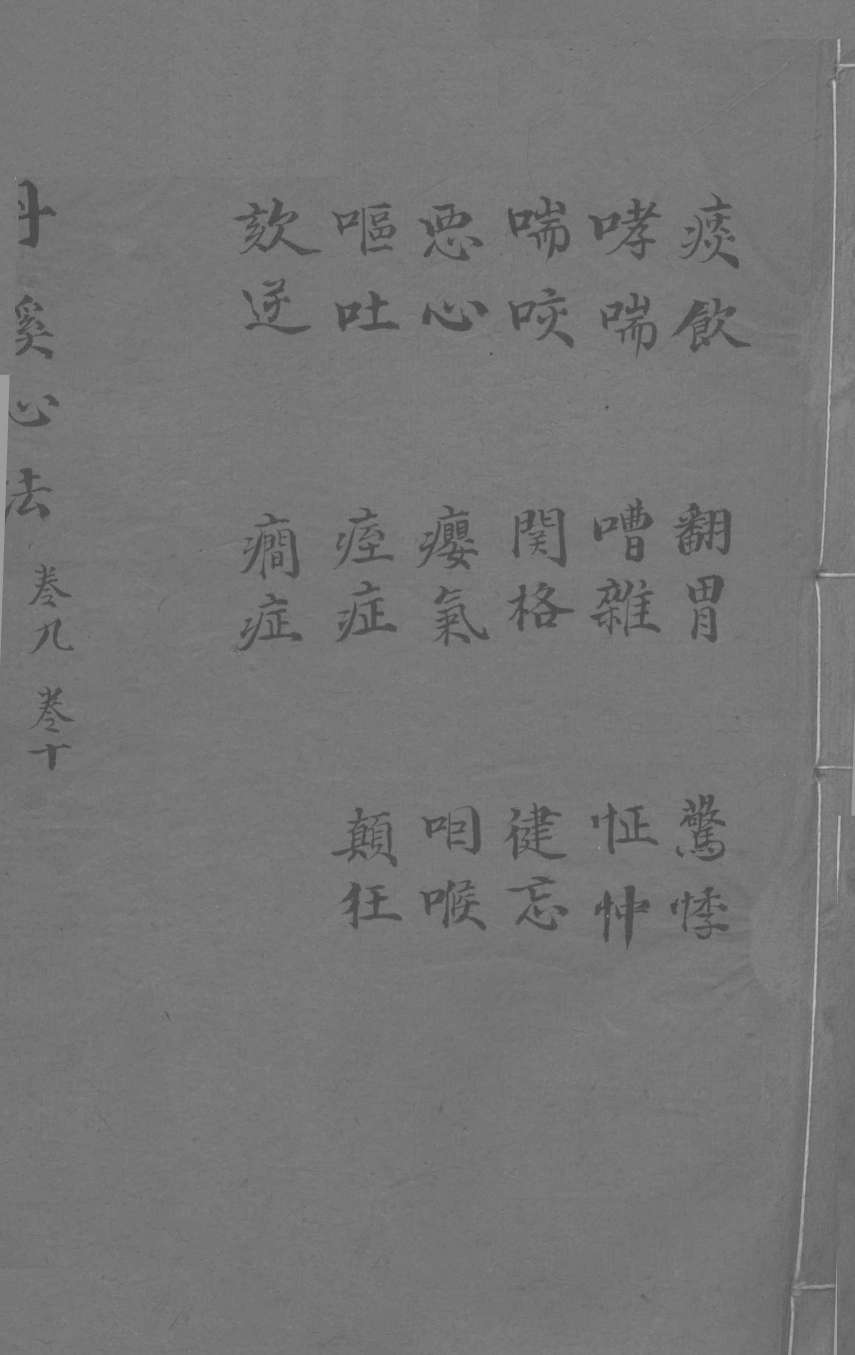 痰飲 翻胃 驚悸
哮喘 嘈雜 怔忡
喘咳 関格 健忘
悪心 癭氣 咽喉
嘔吐 痓症 顛狂
欬逆 癇症
丹溪心法 卷九 卷十